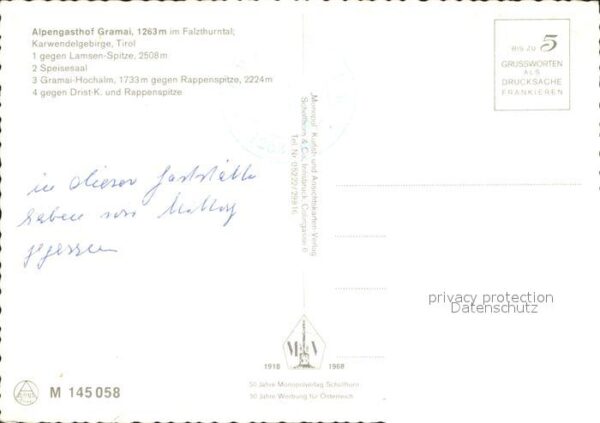 Alpengasthof Gramai, 1263 m im Falzthurntal;
Karwendelgebirge, Tirol
1 gegen Lamsen-Spitze, 2508 m
2 Speisesaal
3 Gramai-Hochalm, 1733 m gegen Rappenspitze, 2224 m
4 gegen Drist-K. und Rappenspitze
BIS ZU 5
GRUSSWORTEN
ALS
DRUCKSACHE
FRANKIEREN
„Monopol" Kunst- und Ansichtskarten-Verlag
Schöllhorn & Co., Innsbruck,
Tel. Nr. 05222/29816
in dieser Gaststätte
haben wir Mittag
gegessen
privacy protection
Datenschutz
1918 1968
50 Jahre Monopolverlag Schöllhorn
50 Jahre Werbung für Österreich
M 145 058